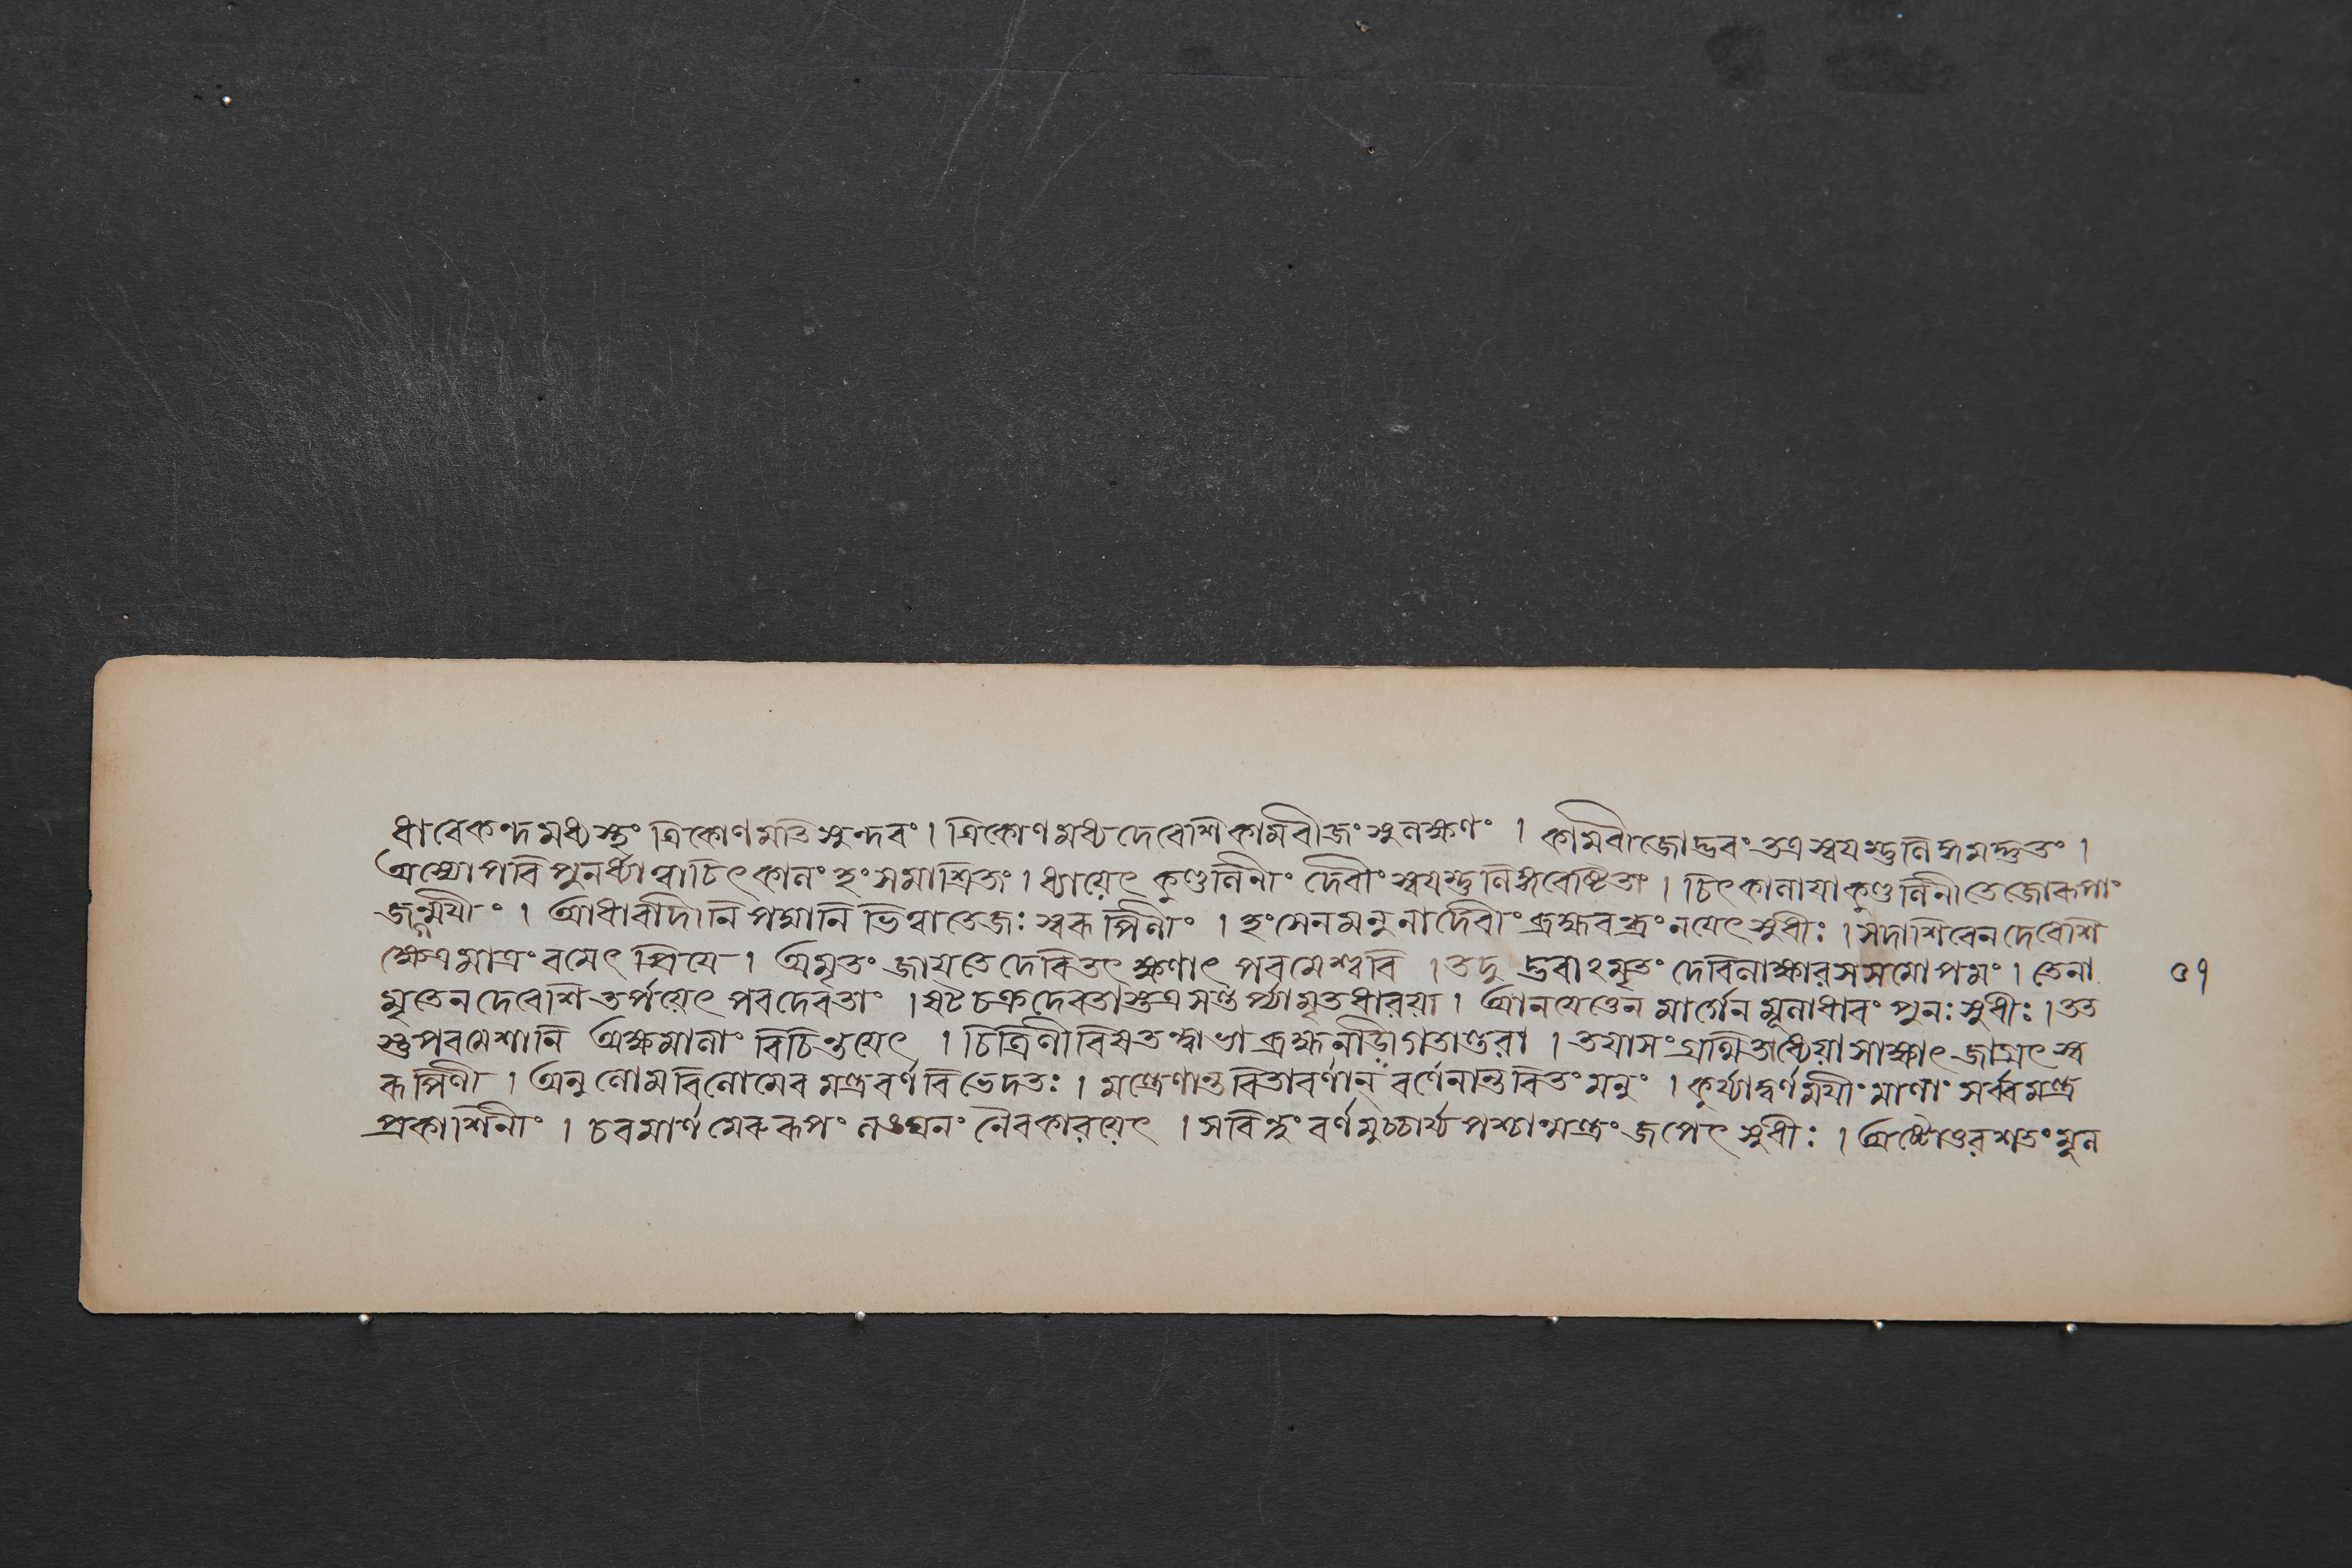 ধারেকন্দমধ্যস্থং ত্রিকোণমতিসুন্দরং। ত্রিকোণমধ্যদেবেশিকামবীজং সুলক্ষণং । কামবীজোদ্ভবং তত্র স্বয়ম্ভুলিঙ্গমদ্ভুতং ।
অস্যোপরি পুনর্ধ্যাত্বাচিৎকালং হংসমাশ্রিতং। ধ্যায়েৎ কুণ্ডলিনীং দেবীং স্বয়ম্ভুলিঙ্গবেষ্টিতাং । চিৎকালায়াকুণ্ডলিনীতেজোরূপাং
জন্ময়ীং । আধারাদীনি পদ্মানি ভিত্বাতেজঃ স্বরূপিণীং । হংসেনমনুনাদেবীং ব্রহ্মরন্ধ্রং নয়েৎসুধীঃ । সদাশিবেনদেবেশি
ক্ষেত্রমাত্রং রমেৎ প্রিয়ে । অমৃতং জায়তেদেবিতৎ ক্ষণাৎ পরমেশ্বরি । তদু দ্ভবাঽমৃতং দেবিলাক্ষারসসমোপমং । তেনা ৩৭
মৃতেনদেবেশি তর্পয়েৎ পরদেবতাং । ষট চক্রদেবতাস্তত্রসন্তর্প্যামৃতধারয়া । আনয়েত্তেন মার্গেন মূলাধারং পুনঃ সুধীঃ । তত
স্তুপরমেশানি অক্ষমালাং বিচিন্তয়েৎ । চিত্রিণীবিষতন্ত্বাভাব্রহ্মনাড়ীগতান্তরা । তয়াসংগ্রন্থিতাধ্যেয়াসাক্ষাৎজাগ্রৎস্ব
রূপিণী । অনুলোমবিলোমেন মন্ত্রবর্ণবিভেদতঃ । মন্ত্রেণান্তরিতাবর্ণান্ বর্ণেনান্তরিতং মনুং । কুর্য্যাদ্বর্ণময়ীং মালাং সর্ব্বমন্ত্র
প্রকাশিনীং । চরমার্ণমেরুরূপং লঙ্ঘনং নৈবকারয়েৎ । সবিন্দুং বর্ণমুচ্চার্য্যপশ্চান্মন্ত্রং জপেৎ সুধীঃ । অষ্টোত্তরশতং মূল